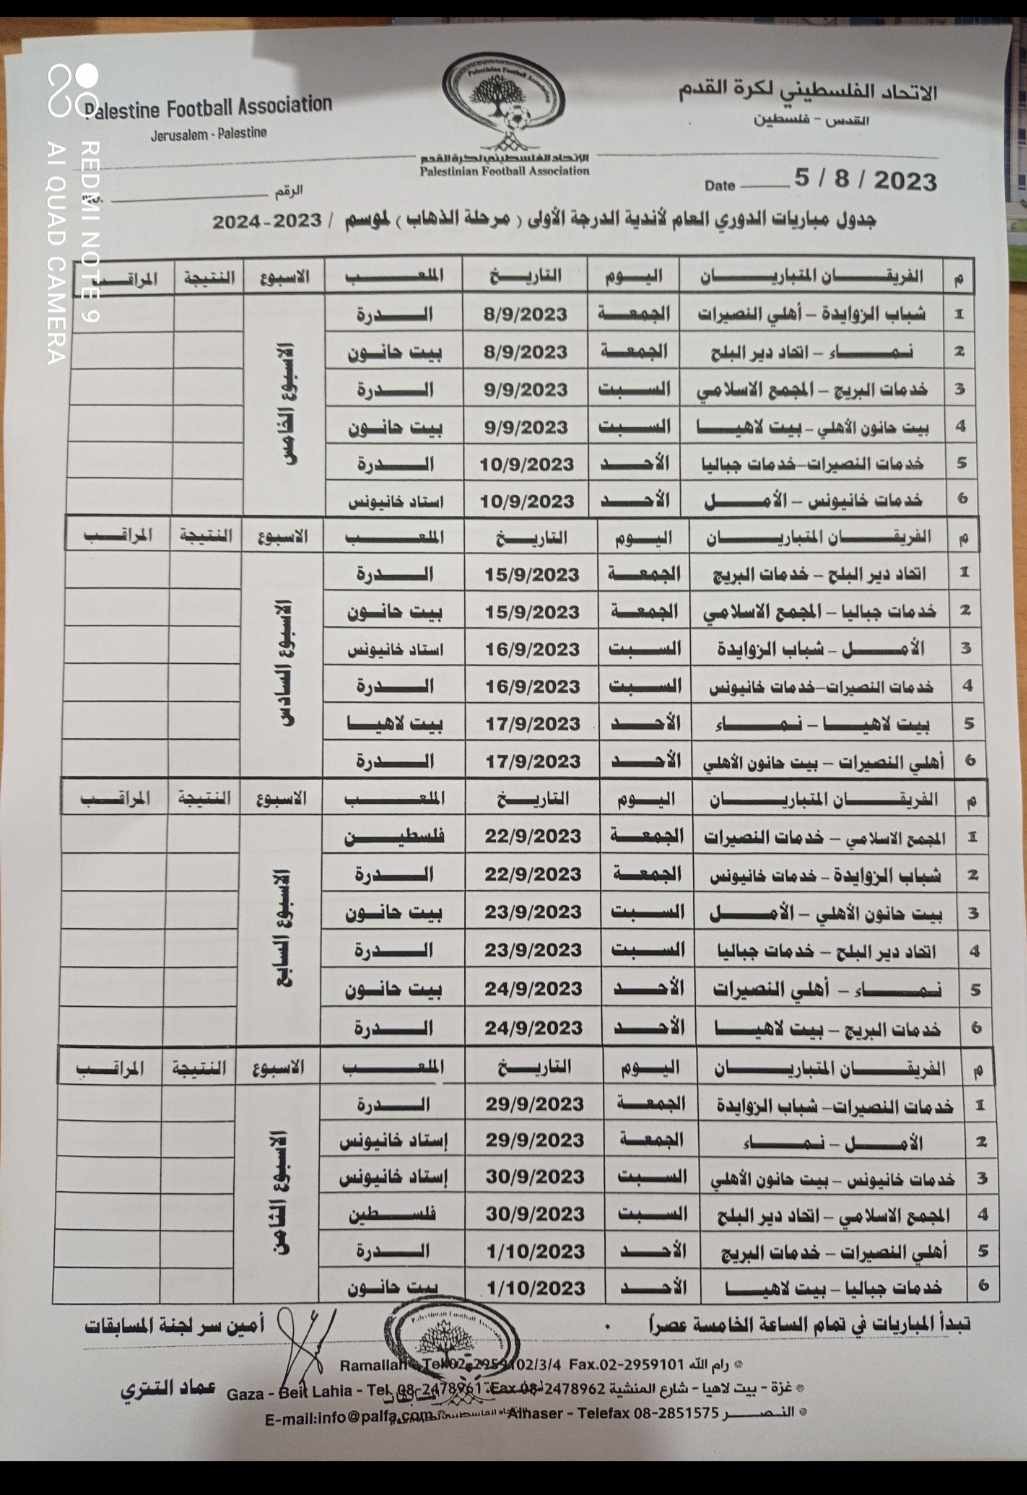 الاتحاد الفلسطيني لكرة القدم
القدس - فلسطين
Palestine Football Association
Jerusalem - Palestine
Palestinian Football Association
الإتحاد الفلسطيني لكرة القدم
Palestinian Football Association
Date 5 / 8 / 2023
No. الرقم
جدول مباريات الدوري العام لأندية الدرجة الأولى ( مرحلة الذهاب ) لموسم / 2023-2024
م الفريقان المتباريان اليوم التاريخ الملعب الاسبوع النتيجة المراقب
الاسبوع الخامس
1 شباب الزوايدة – أهلي النصيرات الجمعة 8/9/2023 الدرة
2 نماء – اتحاد دير البلح الجمعة 8/9/2023 بيت حانون
3 خدمات البريج – المجمع الاسلامي السبت 9/9/2023 الدرة
4 بيت حانون الأهلي – بيت لاهيا السبت 9/9/2023 بيت حانون
5 خدمات النصيرات–خدمات جباليا الأحد 10/9/2023 الدرة
6 خدمات خانيونس – الأمل الأحد 10/9/2023 استاد خانيونس
م الفريقان المتباريان اليوم التاريخ الملعب الاسبوع النتيجة المراقب
الاسبوع السادس
1 اتحاد دير البلح – خدمات البريج الجمعة 15/9/2023 الدرة
2 خدمات جباليا – المجمع الاسلامي الجمعة 15/9/2023 بيت حانون
3 الأمل – شباب الزوايدة السبت 16/9/2023 استاد خانيونس
4 خدمات النصيرات–خدمات خانيونس السبت 16/9/2023 الدرة
5 بيت لاهيا – نماء الأحد 17/9/2023 بيت لاهيا
6 أهلي النصيرات – بيت حانون الأهلي الأحد 17/9/2023 الدرة
م الفريقان المتباريان اليوم التاريخ الملعب الاسبوع النتيجة المراقب
الاسبوع السابع
1 المجمع الاسلامي – خدمات النصيرات الجمعة 22/9/2023 فلسطين
2 شباب الزوايدة – خدمات خانيونس الجمعة 22/9/2023 الدرة
3 بيت حانون الأهلي – الأمل السبت 23/9/2023 بيت حانون
4 اتحاد دير البلح – خدمات جباليا السبت 23/9/2023 الدرة
5 نماء – أهلي النصيرات الأحد 24/9/2023 بيت حانون
6 خدمات البريج – بيت لاهيا الأحد 24/9/2023 الدرة
م الفريقان المتباريان اليوم التاريخ الملعب الاسبوع النتيجة المراقب
الاسبوع الثامن
1 خدمات النصيرات– شباب الزوايدة الجمعة 29/9/2023 الدرة
2 الأمل – نماء الجمعة 29/9/2023 إستاد خانيونس
3 خدمات خانيونس – بيت حانون الأهلي السبت 30/9/2023 إستاد خانيونس
4 المجمع الاسلامي – اتحاد دير البلح السبت 30/9/2023 فلسطين
5 أهلي النصيرات – خدمات البريج الأحد 1/10/2023 الدرة
6 خدمات جباليا – بيت لاهيا الأحد 1/10/2023 بيت حانون
تبدأ المباريات في تمام الساعة الخامسة عصراً .
أمين سر لجنة المسابقات
عماد التتري
رام الله Ramallah - Tel.02-2959102/3/4 Fax.02-2959101
غزة - بيت لاهيا - شارع المنشية Gaza - Beit Lahia - Tel. 08-2478961 Fax.08-2478962
النصر Alnaser - Telefax 08-2851575
E-mail:info@palfa.com
REDMI NOTE 9
AI QUAD CAMERA